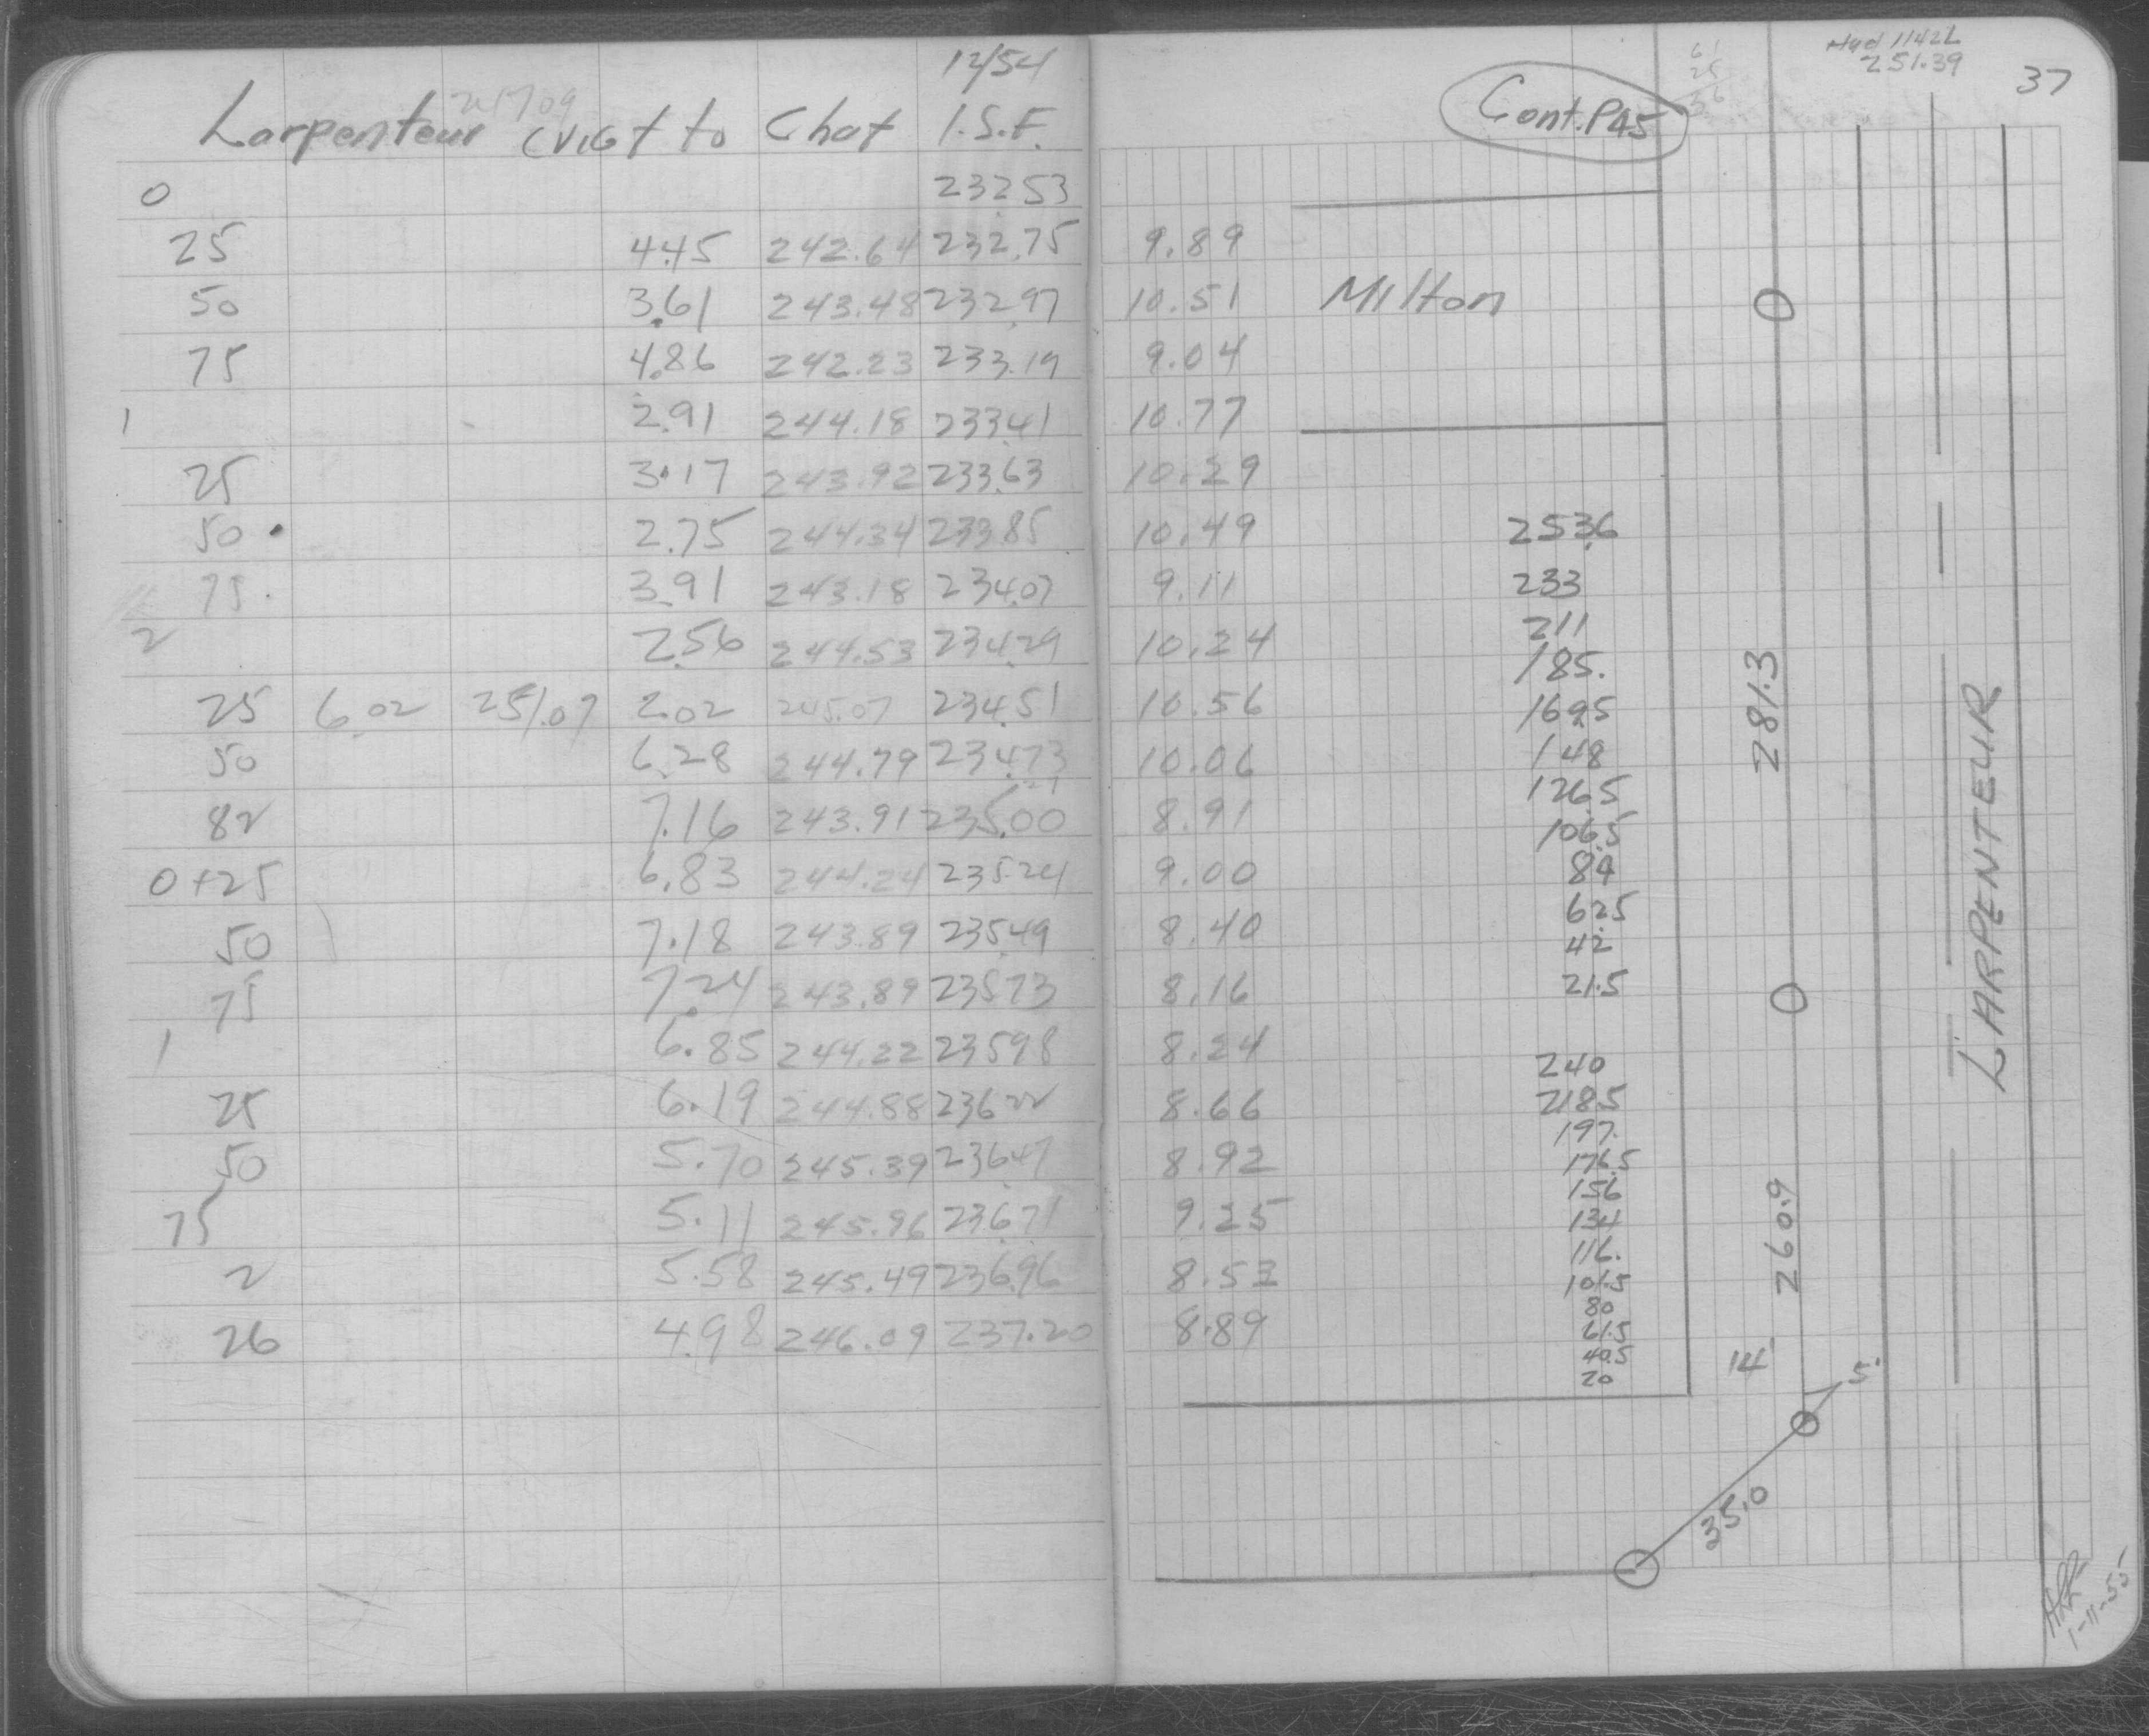 12/54
Larpenteur (Vict to Chat I.S.F.
0 232.53
25 4.45 242.64 232.75 9.89
50 3.61 243.48 232.97 10.51
75 4.86 242.23 233.19 9.04
1 2.91 244.18 233.41 10.77
25 3.17 243.92 233.63 10.29
50 2.75 244.34 233.85 10.49
75 3.91 243.18 234.07 9.11
2 2.56 244.53 234.29 10.24
25 6.02 251.07 2.02 245.07 234.51 10.56
50 6.28 244.79 234.73 10.06
82 7.16 243.91 235.00 8.91
0+25 6.83 244.24 235.24 9.00
50 7.18 243.89 235.49 8.40
75 7.24 243.89 235.73 8.16
1 6.85 244.22 235.98 8.24
25 6.19 244.88 236.22 8.66
50 5.70 245.39 236.47 8.92
75 5.11 245.96 236.71 9.25
2 5.58 245.49 236.96 8.53
26 4.98 246.09 237.20 8.89
Cont. P45
Hyd 1142L
251.39
37
Milton
253.6
233
211
185.
169.5
148
126.5
106.5
84
62.5
42
21.5
240
218.5
197.
176.5
156
134
116.
101.5
80
61.5
40.5
20
281.3
260.9
LARPENTEUR
14
5'
35.0
1-11-55